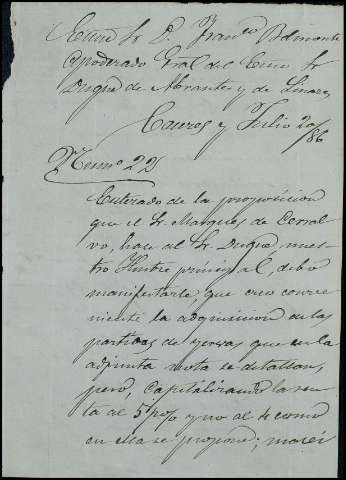 Excmo Sr D. Franco Belmonte
Apoderado Gral del Excmo Sr
Duque de Abrantes y de Linares
Julio 20/86
Numo 22
Enterado de la proposicion
que el Sr. Marques de Cerral
vo, hace al Sr. Duque, nues
tro Ilustre principal, debo
manifestarle, que creo conve
niente la adquisicion de las
partidas de yervas que en la
adjunta nota se detallan,
pero, capitalizando la ren
ta al 5 p% y no al 4 como
en ella se propone;